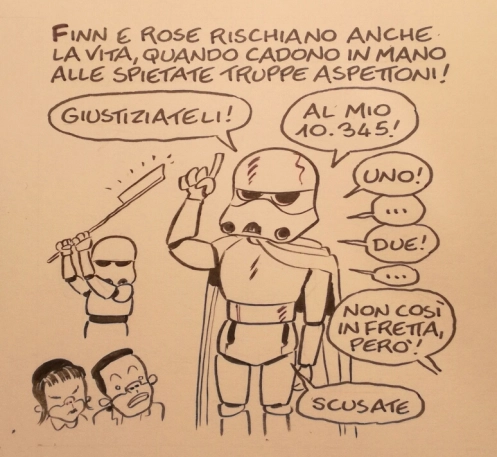 FINN E ROSE RISCHIANO ANCHE
LA VITA, QUANDO CADONO IN MANO
ALLE SPIETATE TRUPPE ASPETTONI!
GIUSTIZIATELI!
AL MIO
10.345!
UNO!
...
DUE!
...
NON COSÌ
IN FRETTA,
PERÒ!
SCUSATE